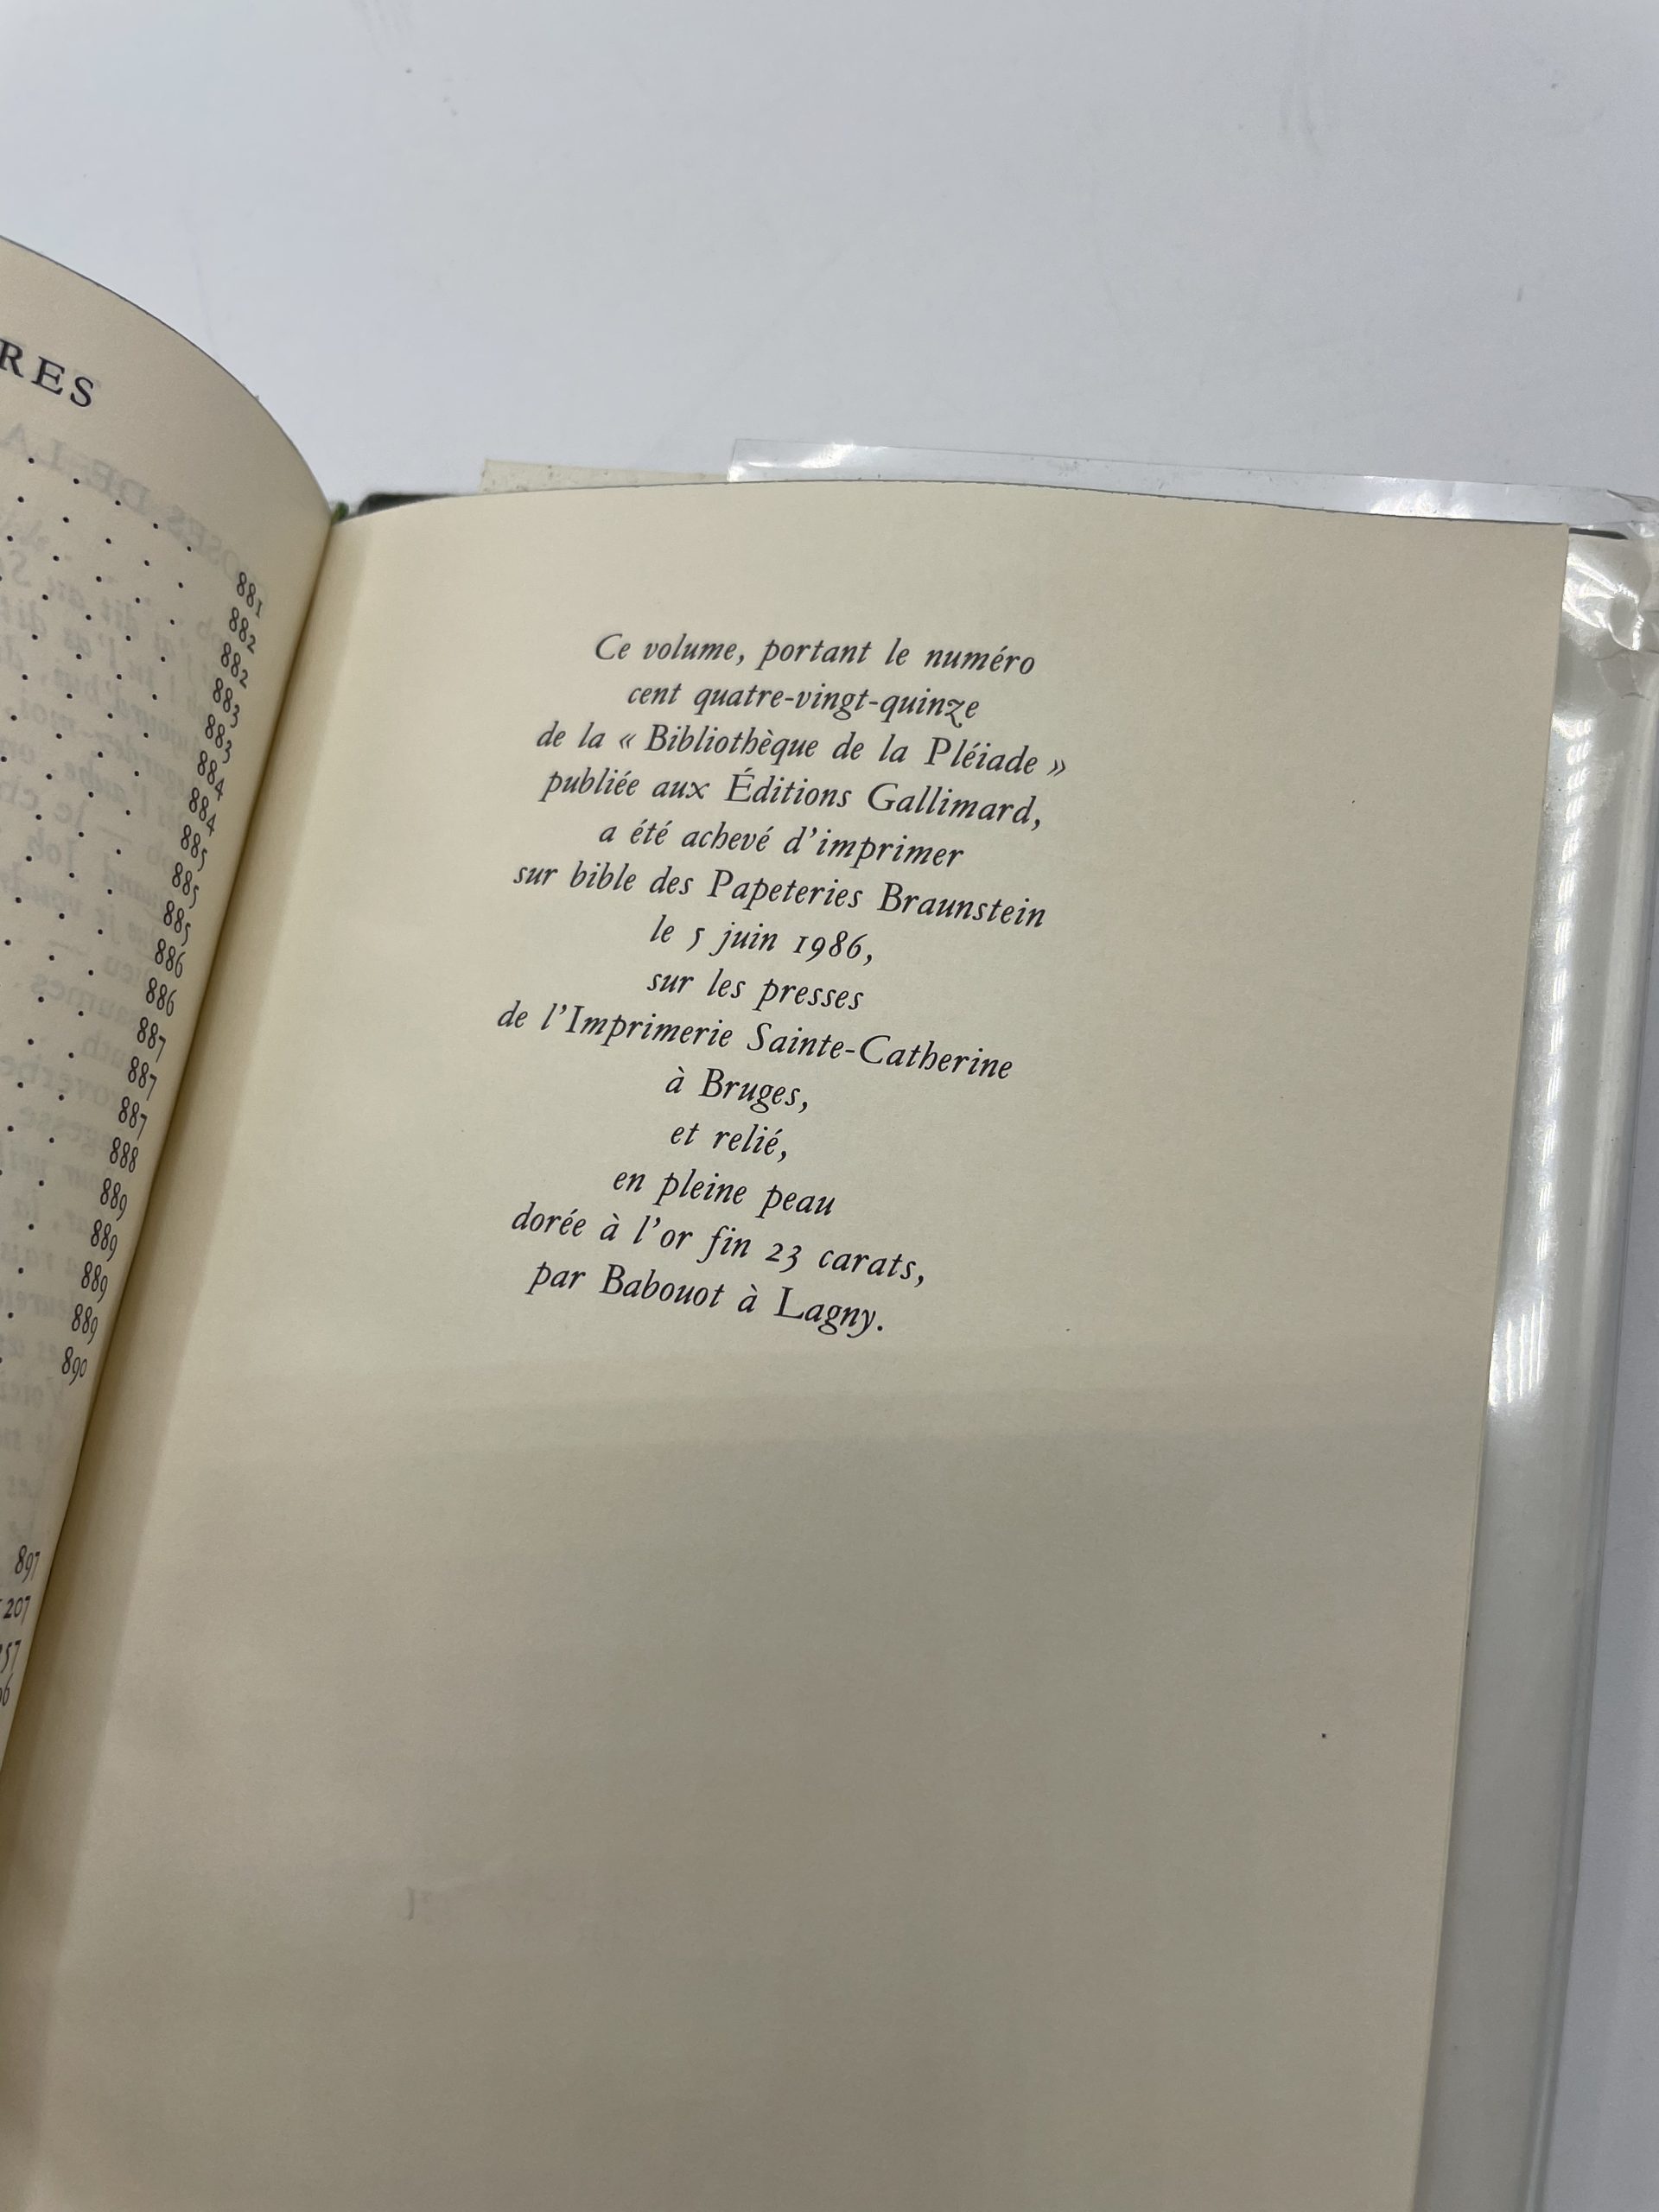 RES
881
882
882
883
883
884
884
885
885
885
886
886
887
887
887
888
889
889
889
889
890
897
207
Ce volume, portant le numéro
cent quatre-vingt-quinze
de la « Bibliothèque de la Pléiade »
publiée aux Éditions Gallimard,
a été achevé d'imprimer
sur bible des Papeteries Braunstein
le 5 juin 1986,
sur les presses
de l'Imprimerie Sainte-Catherine
à Bruges,
et relié,
en pleine peau
dorée à l'or fin 23 carats,
par Babouot à Lagny.